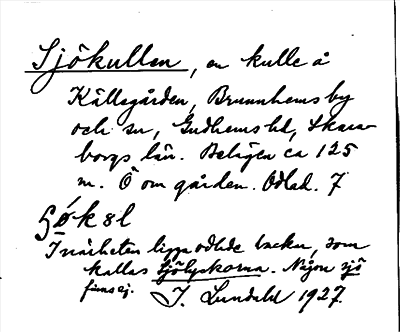 Sjökullen, en kulle å
Källegården, Brunnhems by
och sn, Gudhems hd, Skara-
borgs län. Belägen ca 125
m. Ö om gården. Odlad. 7
I närheten ligga odlade backar, som
kallas Sjölyckorna. Någon sjö
finns ej. J. Lundahl 1927.